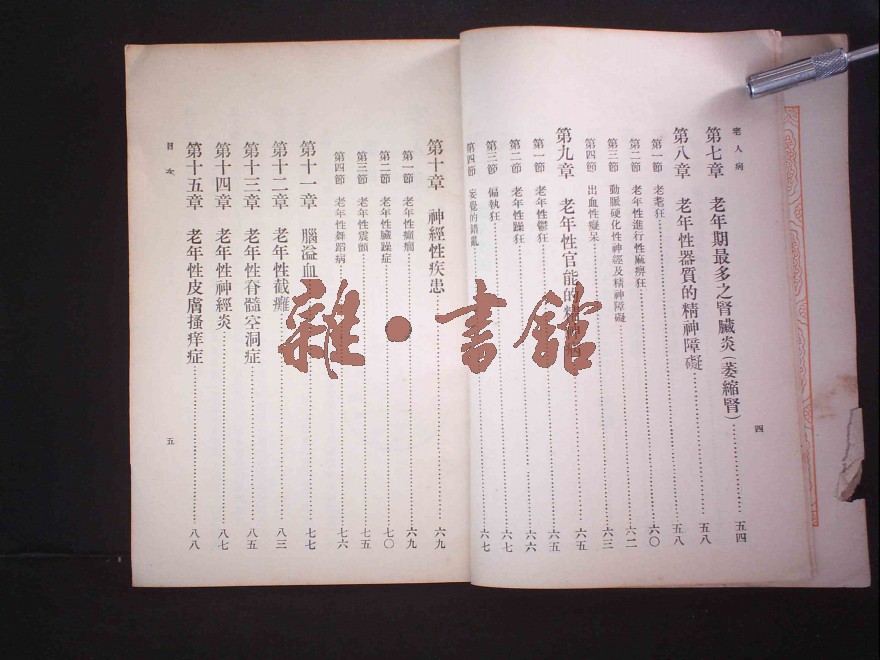 老人病
第七章 老年期最多之腎臟炎(萎縮腎)……五四
第八章 老年性器質的精神障礙……五八
第一節 老耄狂……五八
第二節 老年性進行性麻痹狂……六〇
第三節 動脈硬化性神經及精神障礙……六二
第四節 出血性癡呆……六三
第九章 老年性官能的精神病……六五
第一節 老年性鬱狂……六五
第二節 老年性躁狂……六六
第三節 偏執狂……六七
第四節 妄覺的錯亂……六七
四
第十章 神經性疾患……六九
第一節 老年性癲癇……六九
第二節 老年性臟躁症……七〇
第三節 老年性震顫……七五
第四節 老年性舞蹈病……七六
第十一章 腦溢血……七七
第十二章 老年性截癱……八三
第十三章 老年性脊髓空洞症……八五
第十四章 老年性神經炎……八七
第十五章 老年性皮膚搔痒症……八八
目次
五
雜·書館